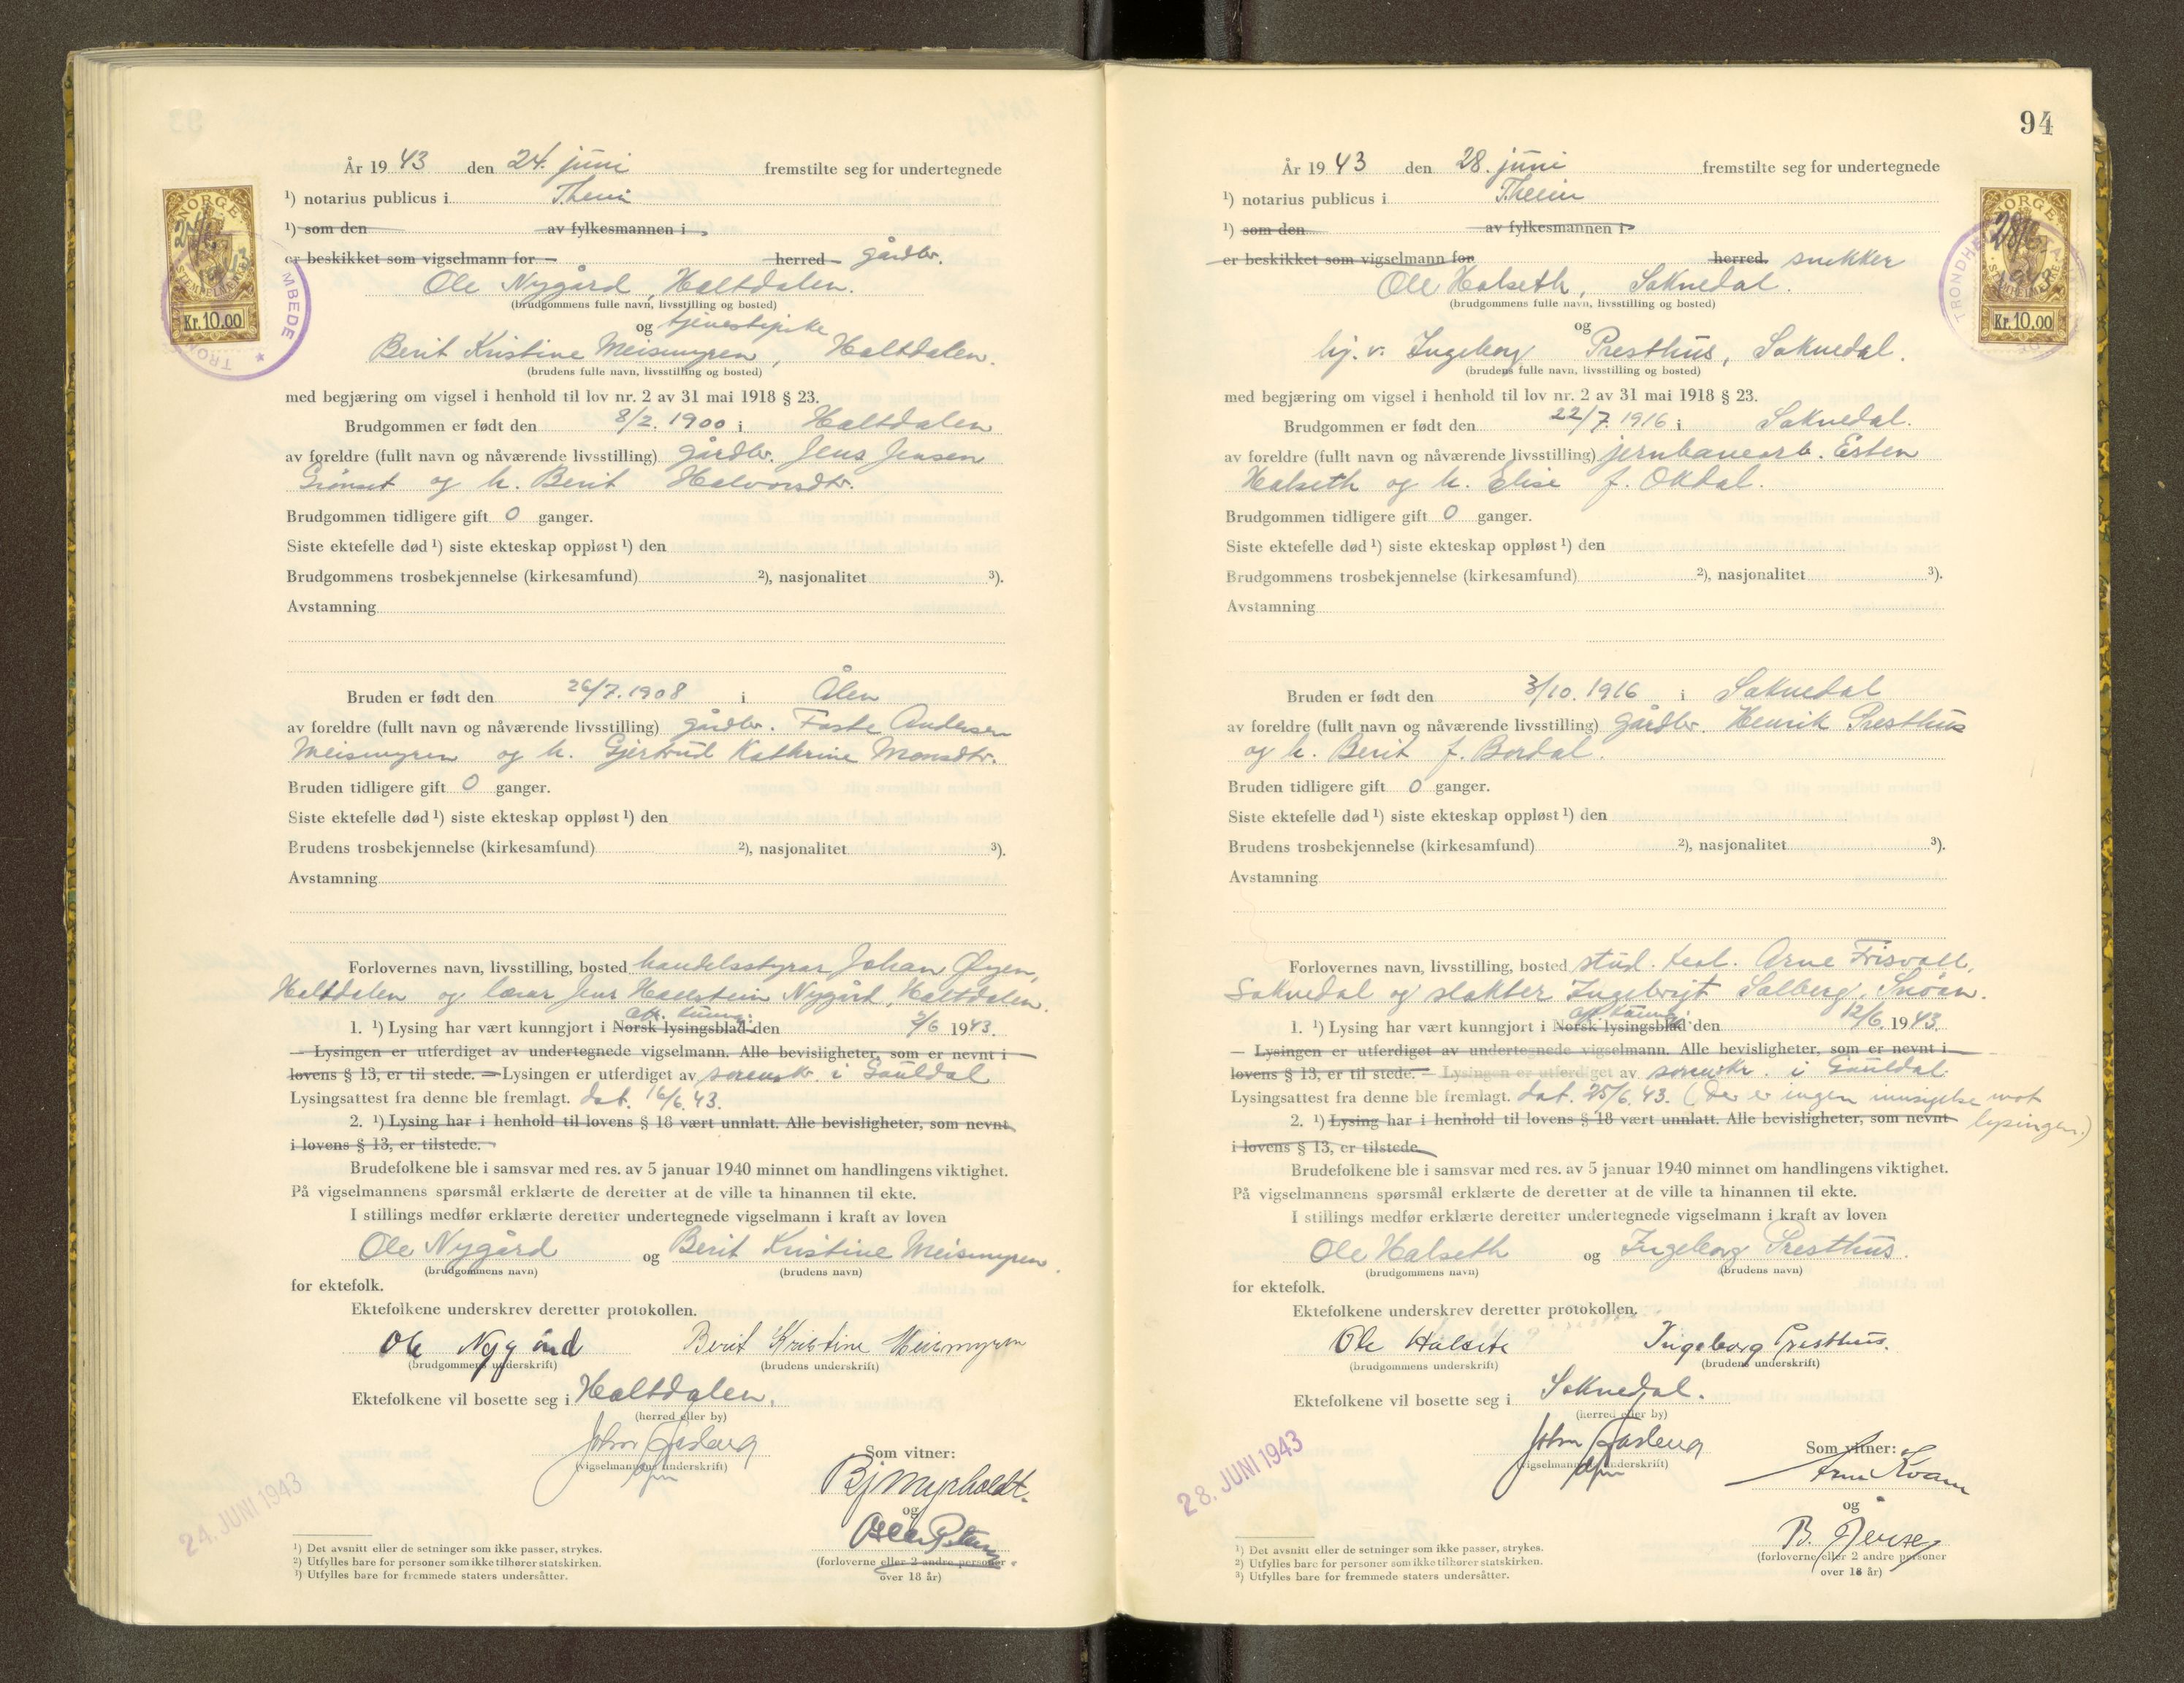 År 19 43 den 24. juni fremstilte seg for undertegnede
¹) notarius publicus i Theim
¹) som den av fylkesmannen i
er beskikket som vigselmann for herred gårdbr.
Ole Nygård, Haltdalen.
(brudgommens fulle navn, livsstilling og bosted)
og tjenestepike
Berit Kristine Meismyren, Haltdalen.
(brudens fulle navn, livsstilling og bosted)
med begjæring om vigsel i henhold til lov nr. 2 av 31 mai 1918 § 23.
Brudgommen er født den 8/2. 1900 i Haltdalen
av foreldre (fullt navn og nåværende livsstilling) gårdbr. Jens Jensen
Grønset og h. Berit Halvorsdtr.
Brudgommen tidligere gift 0 ganger.
Siste ektefelle død ¹) siste ekteskap oppløst ¹) den
Brudgommens trosbekjennelse (kirkesamfund) ²), nasjonalitet ³).
Avstamning
Bruden er født den 26/7. 1908 i Ålen
av foreldre (fullt navn og nåværende livsstilling) gårdbr. Faste Andersen
Meismyren og h. Gjertrud Kathrine Monsdtr.
Bruden tidligere gift 0 ganger.
Siste ektefelle død ¹) siste ekteskap oppløst ¹) den
Brudens trosbekjennelse (kirkesamfund) ²), nasjonalitet ³).
Avstamning
Forlovernes navn, livsstilling, bosted handelsstyrar Johan Øyen,
Haltdalen og lærar Jens Hallstein Nygård, Haltdalen.
off. kunng:
1. ¹) Lysing har vært kunngjort i Norsk lysingsblad den 2/6 1943.
— Lysingen er utferdiget av undertegnede vigselmann. Alle bevisligheter, som er nevnt i
lovens § 13, er til stede. — Lysingen er utferdiget av sorenskr. i Gauldal
Lysingsattest fra denne ble fremlagt. dat. 16/6. 43.
2. ¹) Lysing har i henhold til lovens § 18 vært unnlatt. Alle bevisligheter, som nevnt
i lovens § 13, er tilstede.
Brudefolkene ble i samsvar med res. av 5 januar 1940 minnet om handlingens viktighet.
På vigselmannens spørsmål erklærte de deretter at de ville ta hinannen til ekte.
I stillings medfør erklærte deretter undertegnede vigselmann i kraft av loven
Ole Nygård og Berit Kristine Meismyren.
(brudgommens navn) (brudens navn)
for ektefolk.
Ektefolkene underskrev deretter protokollen.
Ole Nygård Berit Kristine Meismyren
(brudgommens underskrift) (brudens underskrift)
Ektefolkene vil bosette seg i Haltdalen.
(herred eller by)
(vigselmannens underskrift)
Som vitner:
Bj Myrholdt.
og
(forloverne eller 2 andre personer
over 18 år)
24. JUNI 1943
¹) Det avsnitt eller de setninger som ikke passer, strykes.
²) Utfylles bare for personer som ikke tilhører statskirken.
³) Utfylles bare for fremmede staters undersåtter.
NORGE
STEMPELMERKE
Kr. 10.00
94
År 19 43 den 28. juni fremstilte seg for undertegnede
¹) notarius publicus i Theim
¹) som den av fylkesmannen i
er beskikket som vigselmann for herred. snekker
Ole Halseth, Soknedal.
(brudgommens fulle navn, livsstilling og bosted)
og
hj. v. Ingeborg Presthus, Soknedal.
(brudens fulle navn, livsstilling og bosted)
med begjæring om vigsel i henhold til lov nr. 2 av 31 mai 1918 § 23.
Brudgommen er født den 22/7. 1916 i Soknedal.
av foreldre (fullt navn og nåværende livsstilling) jernbanearb. Esten
Halseth og h. Elise f. Okdal.
Brudgommen tidligere gift 0 ganger.
Siste ektefelle død ¹) siste ekteskap oppløst ¹) den
Brudgommens trosbekjennelse (kirkesamfund) ²), nasjonalitet ³).
Avstamning
Bruden er født den 3/10. 1916 i Soknedal
av foreldre (fullt navn og nåværende livsstilling) gårdbr. Henrik Presthus
og h. Berit f. Bordal.
Bruden tidligere gift 0 ganger.
Siste ektefelle død ¹) siste ekteskap oppløst ¹) den
Brudens trosbekjennelse (kirkesamfund) ²), nasjonalitet ³).
Avstamning
Forlovernes navn, livsstilling, bosted stud. teol. Arne Frisvoll,
Soknedal og slakter Ingebrigt Solberg, Snøan.
off. kunng:
1. ¹) Lysing har vært kunngjort i Norsk lysingsblad den 12/6. 1943.
— Lysingen er utferdiget av undertegnede vigselmann. Alle bevisligheter, som er nevnt i
lovens § 13, er til stede. — Lysingen er utferdiget av sorenskr. i Gauldal
Lysingsattest fra denne ble fremlagt. dat. 25/6. 43. (Der er ingen innsigelse mot
2. ¹) Lysing har i henhold til lovens § 18 vært unnlatt. Alle bevisligheter, som nevnt lysingen.)
i lovens § 13, er tilstede.
Brudefolkene ble i samsvar med res. av 5 januar 1940 minnet om handlingens viktighet.
På vigselmannens spørsmål erklærte de deretter at de ville ta hinannen til ekte.
I stillings medfør erklærte deretter undertegnede vigselmann i kraft av loven
Ole Halseth og Ingeborg Presthus.
(brudgommens navn) (brudens navn)
for ektefolk.
Ektefolkene underskrev deretter protokollen.
Ole Halseth Ingeborg Presthus.
(brudgommens underskrift) (brudens underskrift)
Ektefolkene vil bosette seg i Soknedal.
(herred eller by)
(vigselmannens underskrift)
Som vitner:
Arne Kvam
og
B. Jensen
(forloverne eller 2 andre personer
over 18 år)
28. JUNI 1943
¹) Det avsnitt eller de setninger som ikke passer, strykes.
²) Utfylles bare for personer som ikke tilhører statskirken.
³) Utfylles bare for fremmede staters undersåtter.
NORGE
28/6
1943
Kr. 10.00